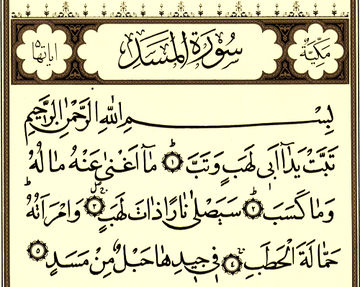 مكية سورة المسد آياتها ٥
بِسْمِ اللَّهِ الرَّحْمَٰنِ الرَّحِيمِ
تَبَّتْ يَدَآ أَبِي لَهَبٍ وَتَبَّ ١ مَآ أَغْنَىٰ عَنْهُ مَالُهُ
وَمَا كَسَبَ ٢ سَيَصْلَىٰ نَارًا ذَاتَ لَهَبٍ ٣ وَامْرَأَتُهُ
حَمَّالَةَ الْحَطَبِ ٤ فِي جِيدِهَا حَبْلٌ مِنْ مَسَدٍ ٥